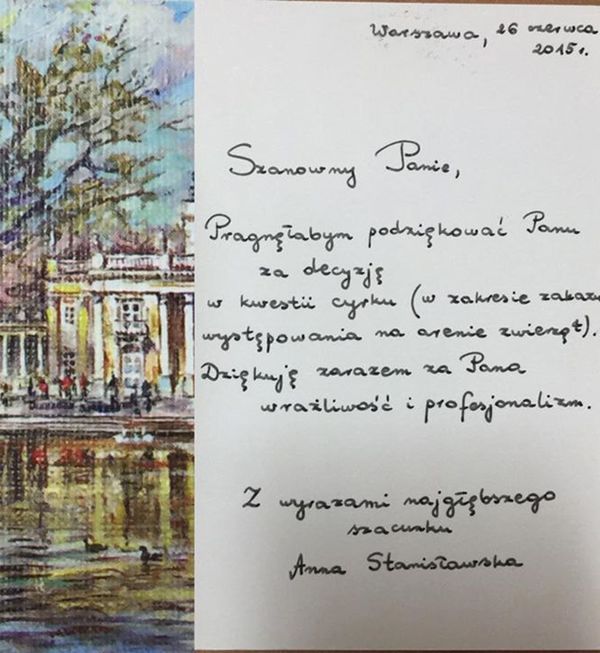 Warszawa, 26 czerwca
2015 r.
Szanowny Panie,
Pragnęłabym podziękować Panu
za decyzję
w kwestii cyrku (w zakresie zakazu
występowania na arenie zwierząt).
Dziękuję zarazem za Pana
wrażliwość i profesjonalizm.
Z wyrazami najgłębszego
szacunku
Anna Stanisławska